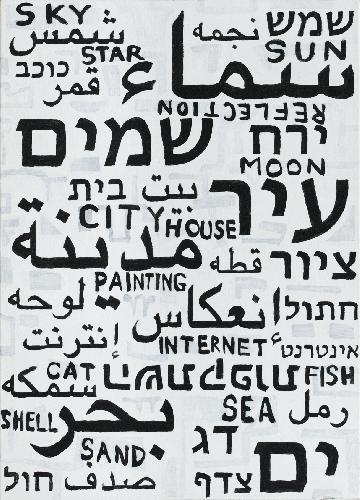 SKY نجمه שמש
شمس STAR SUN
כוכב سماء
قمر
REFLECTION
שמים ירח
MOON
בית بيت עיר
CITY HOUSE
مدينة
قطه ציור
PAINTING
لوحه انعكاس חתול
إنترنت INTERNET אינטרנט
CAT FISH
سمكه
SHELL بحر SEA رمل
SAND דג ים
חול صدف צדף